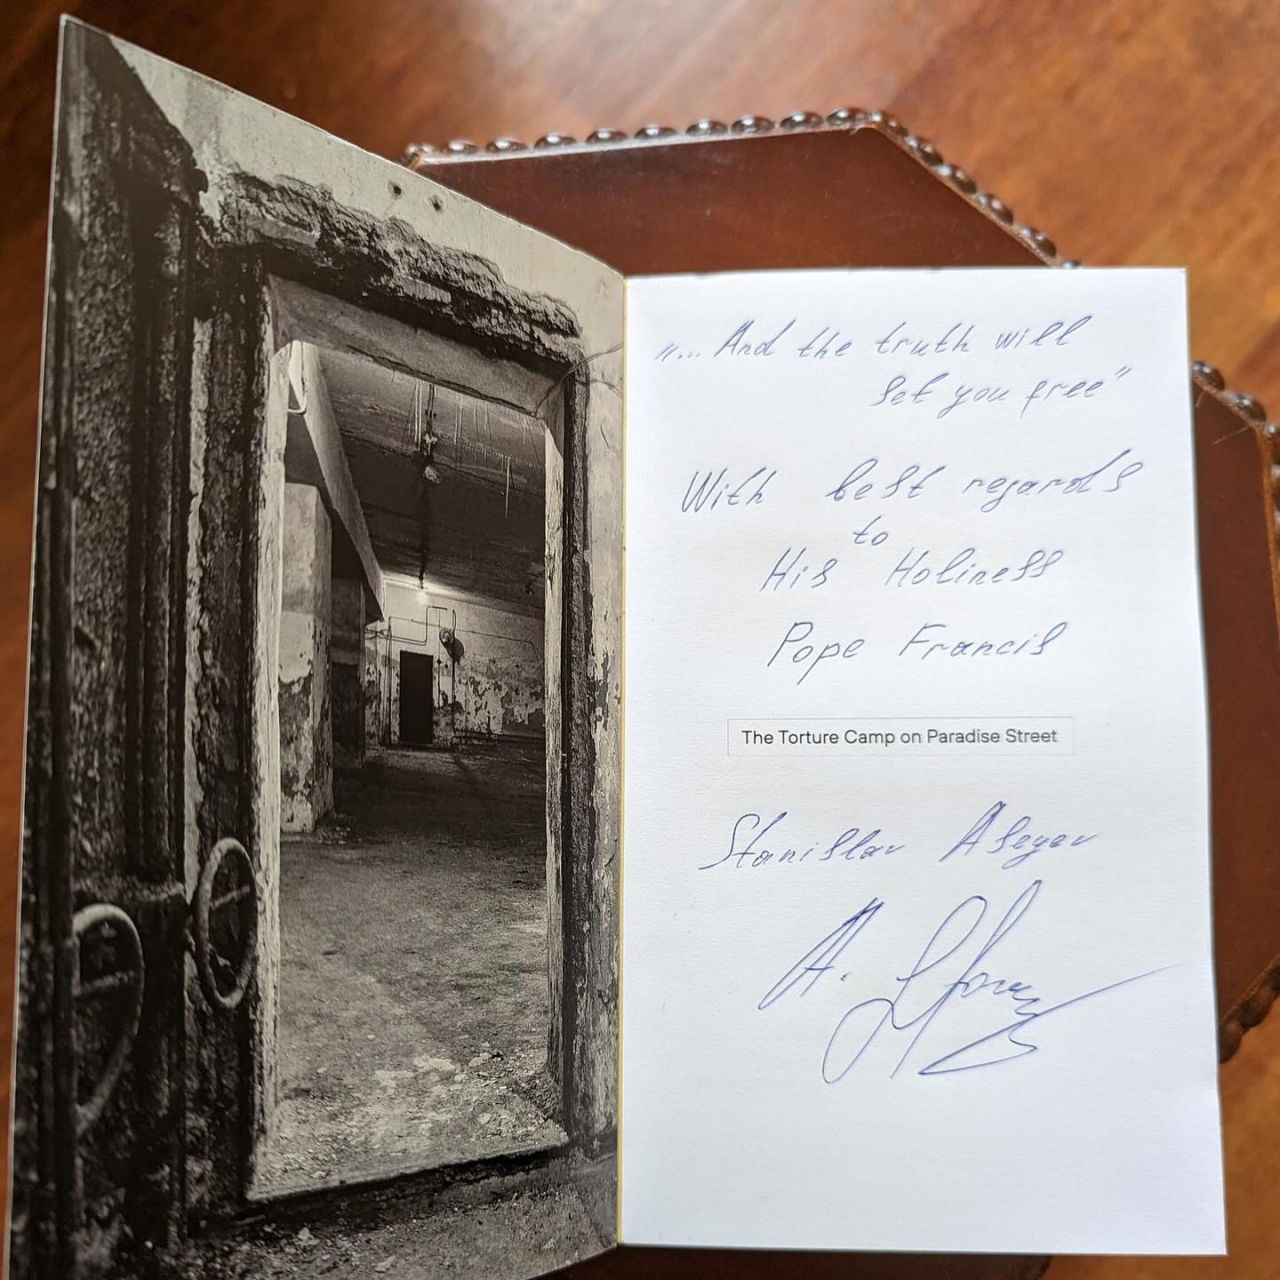 „... And the truth will
set you free”
With best regards
to
His Holiness
Pope Francis
The Torture Camp on Paradise Street
Stanislav Aseyev
A.